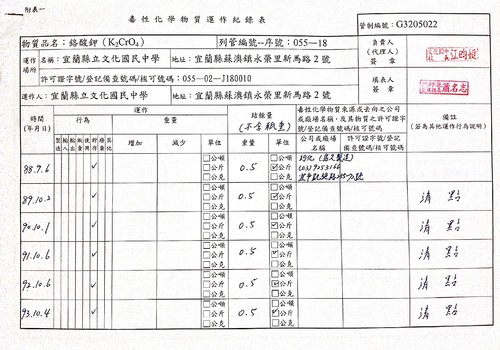 附表一
毒性化學物質運作紀錄表
管制編號：G3205022
物質品名：鉻酸鉀（K2CrO4）
列管編號--序號：055—18
負責人
（代理人）
簽章
運作場所
名稱：宜蘭縣立文化國民中學
地址：宜蘭縣蘇澳鎮永榮里新馬路 2 號
許可證字號/登記備查號碼/核可號碼：055—02—J180010
填表人
簽章
運作人：宜蘭縣立文化國民中學
地址：宜蘭縣蘇澳鎮永榮里新馬路 2 號
時間
(年月日)
運作
行為
重量
製造 輸入 輸出 販賣 使用 貯存 廢棄 其他
增加
減少
單位
結餘量
(不含瓶重)
重量
單位
毒性化學物質來源或去向之公司或廠場名稱，及其物質之許可證字號/登記備查號碼/核可號碼
公司或廠場名稱
許可證字號/登記備查號碼/核可號碼
備註
(若為其他運作行為說明)
88.9.6 ✓ □公噸 □公斤 □公克 0.5 □公噸 ☑公斤 □公克
(03)9253166
89.10.2 ✓ □公噸 □公斤 □公克 0.5 □公噸 ☑公斤 □公克 清點
90.10.1 ✓ □公噸 □公斤 □公克 0.5 □公噸 ☑公斤 □公克 清點
91.10.6 ✓ □公噸 □公斤 □公克 0.5 □公噸 ☑公斤 □公克 清點
92.10.6 ✓ □公噸 □公斤 □公克 0.5 □公噸 ☑公斤 □公克 清點
93.10.4 ✓ □公噸 □公斤 □公克 0.5 □公噸 ☑公斤 □公克 清點